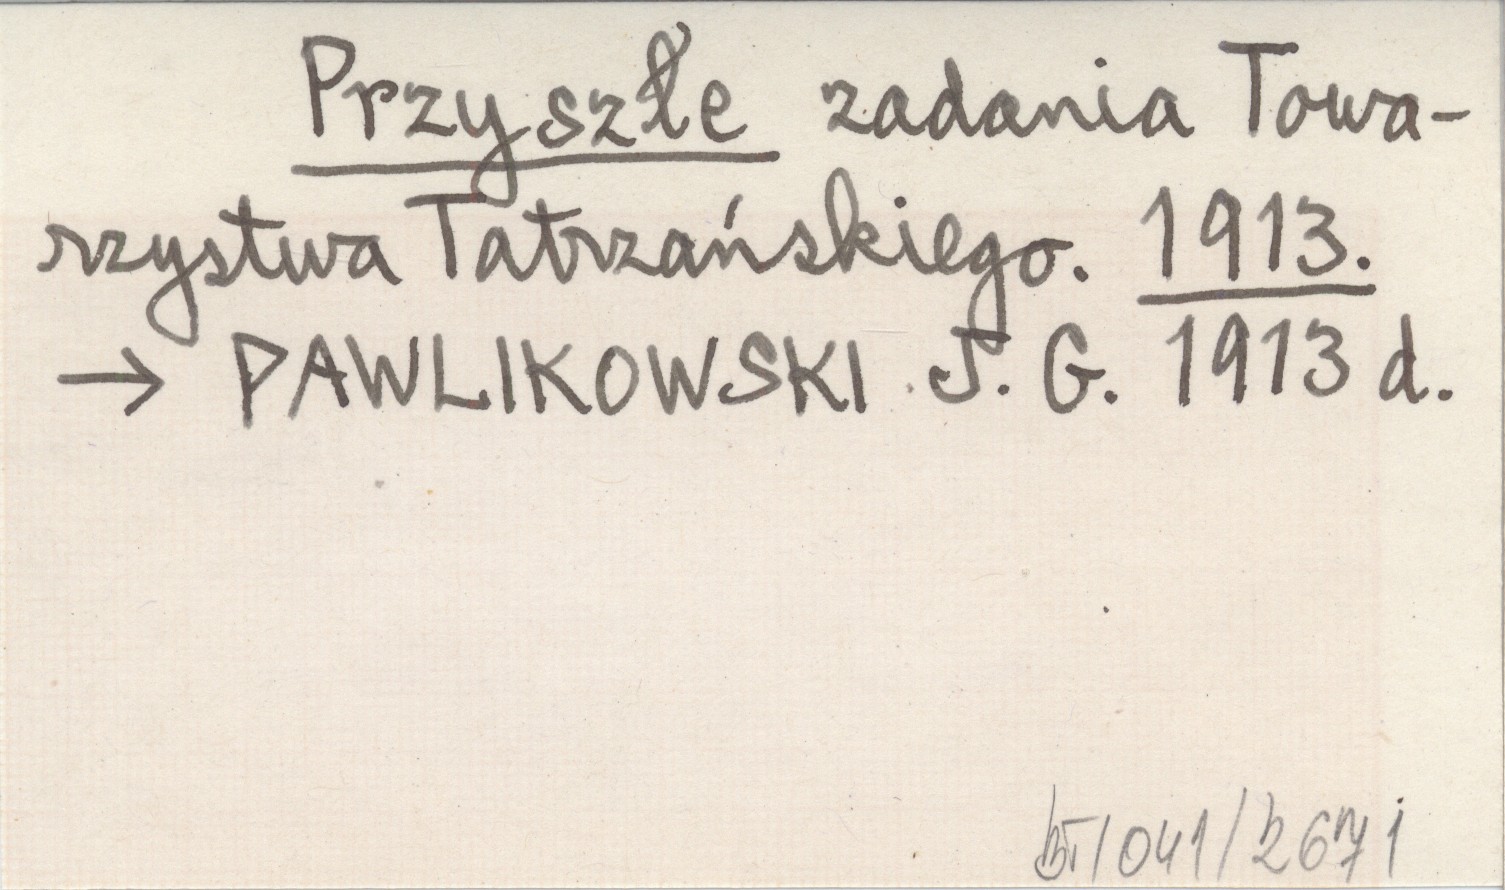 Przyszłe zadania Towa-
rzystwa Tatrzańskiego. 1913.
→ PAWLIKOWSKI J. G. 1913 d.
/041/